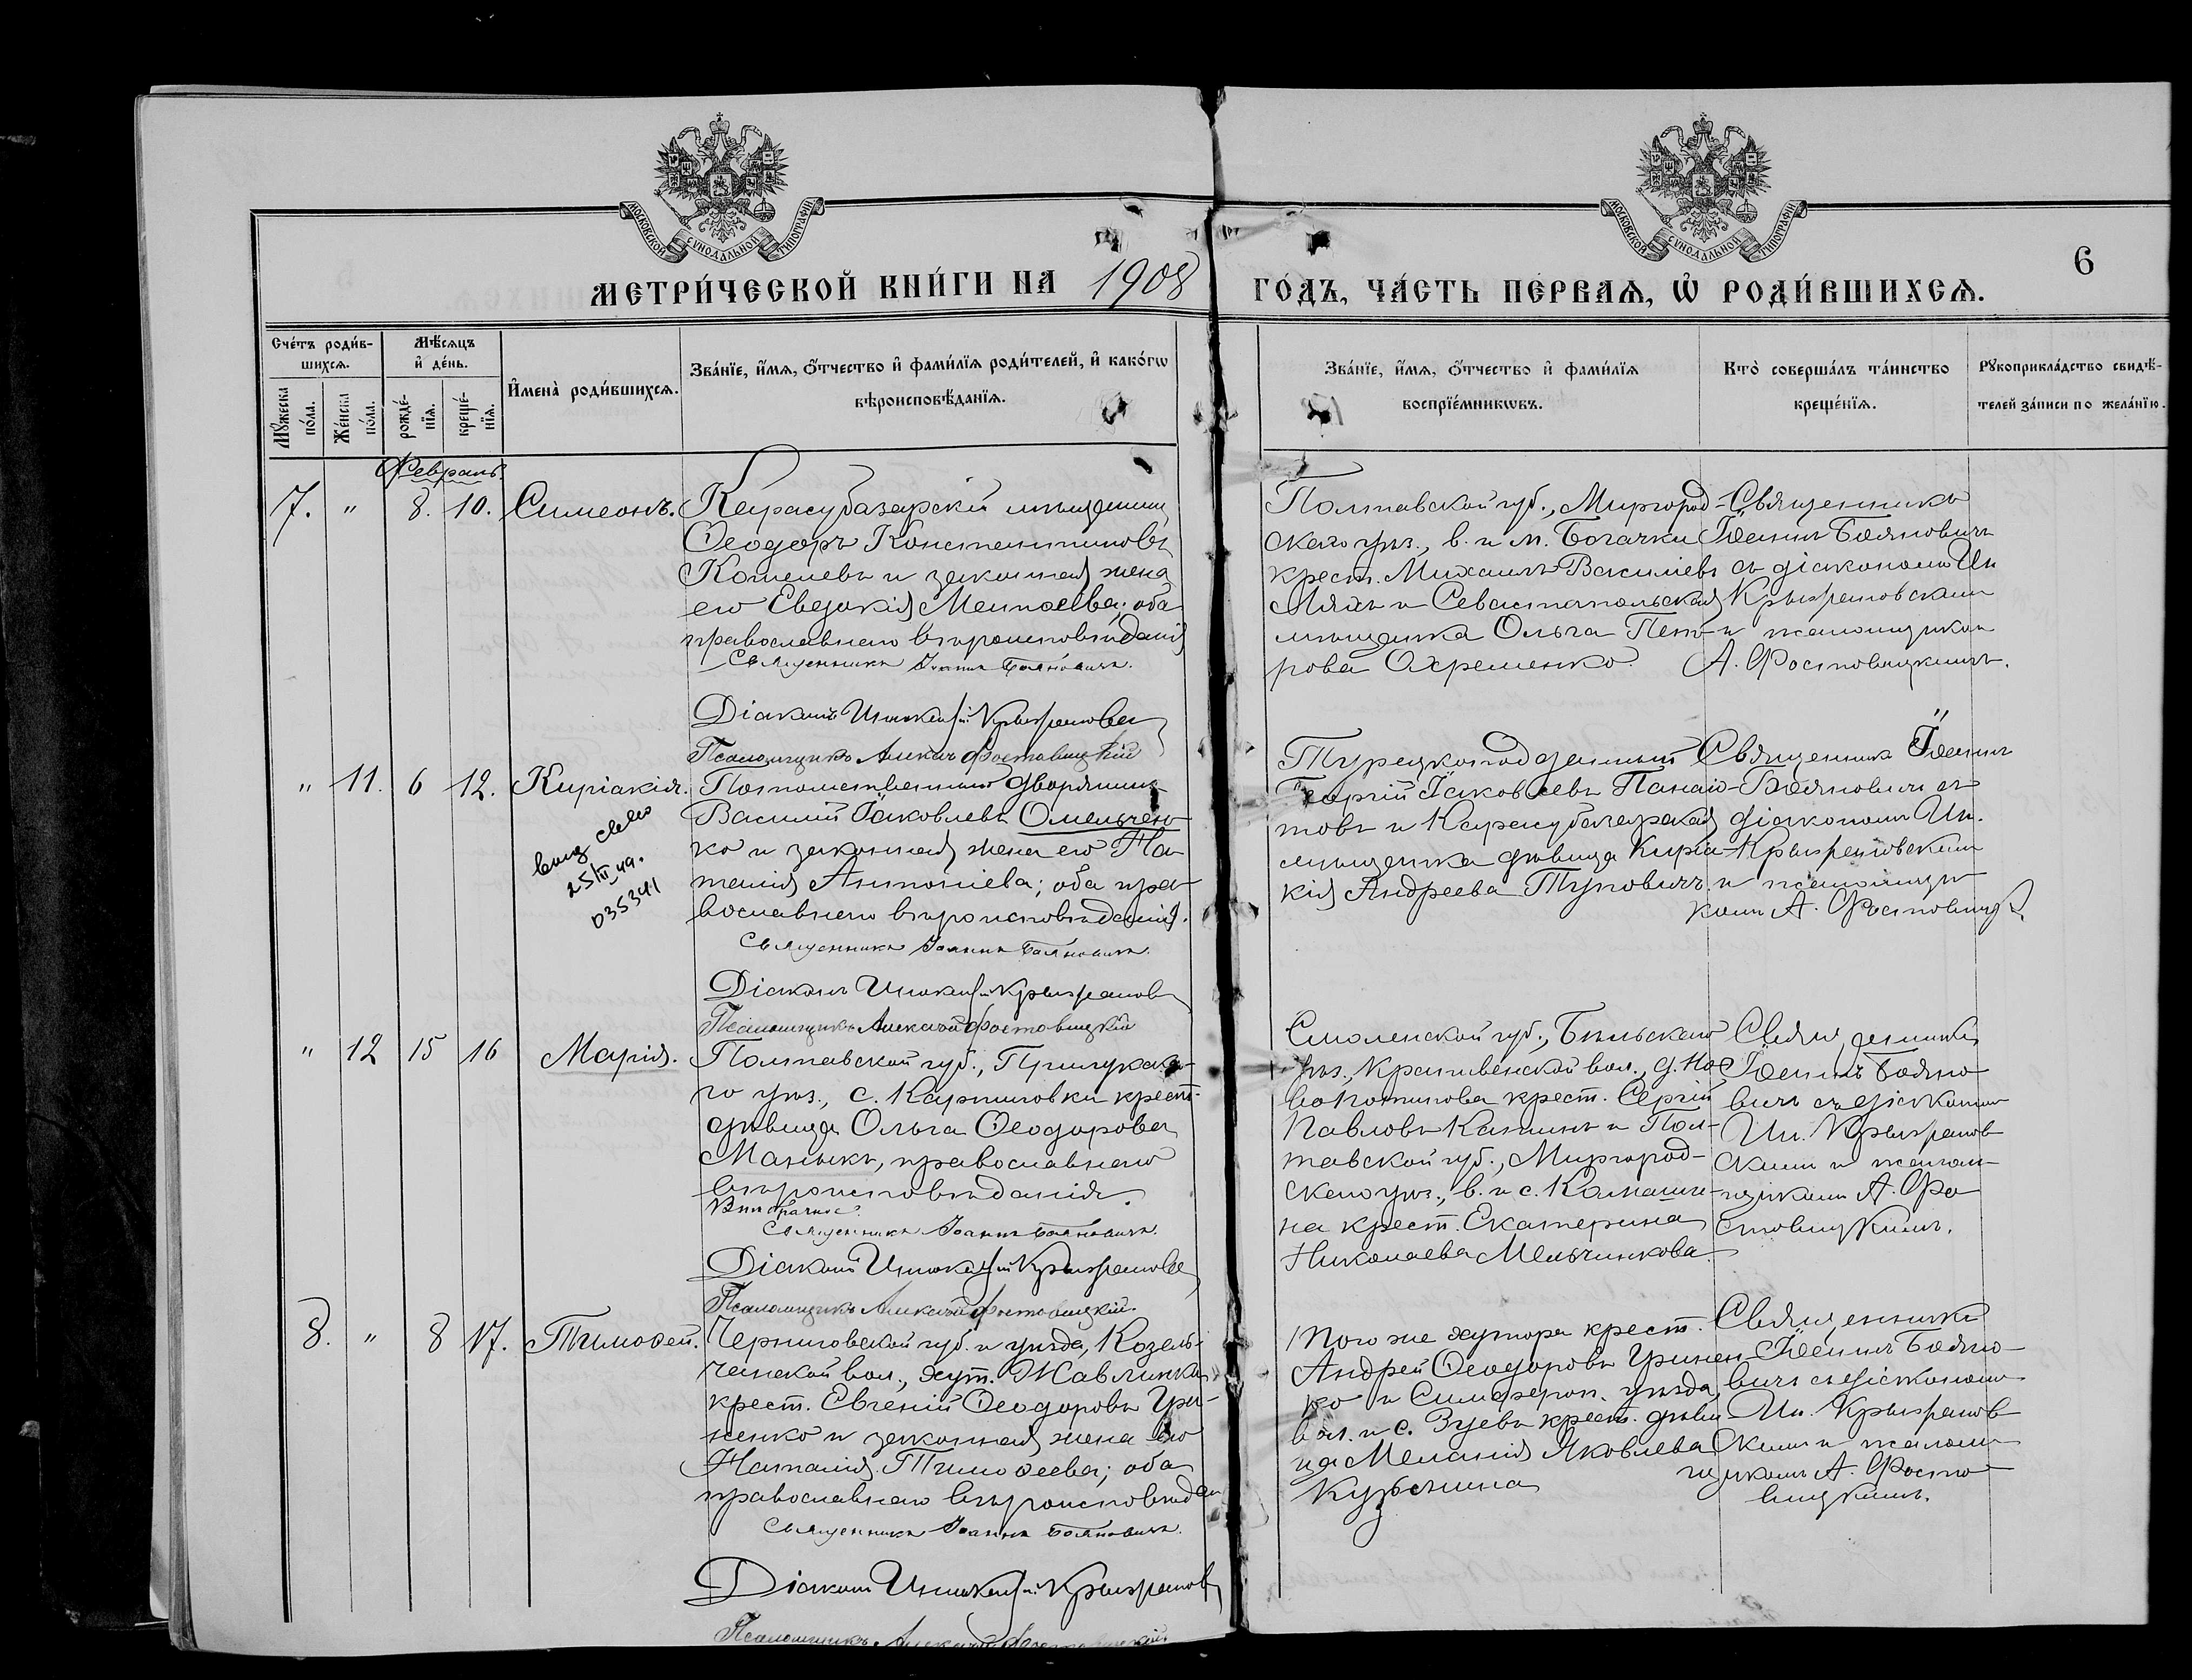 МОСКОВСКОЙ СѴНОДАЛЬНОЙ ТИПОГРАФІИ
МОСКОВСКОЙ СѴНОДАЛЬНОЙ ТИПОГРАФІИ
6
МЕТРИ́ЧЕСКОЙ КНИ́ГИ НА 1908 ГО́ДЪ, ЧА́СТЬ ПЕ́РВАѦ, Ѡ҆ РОДИ́ВШИХСѦ.
Сче́тъ роди́в-
шихсѧ.
Мꙋ́жеска по́ла.
Же́нска по́ла.
Мѣ́сѧцъ
и҆ де́нь.
рожде́-
нїѧ.
креще́-
нїѧ.
И҆мена̀ роди́вшихсѧ.
Зва́нїе, и҆́мѧ, ѻ҆́тчество и҆ фами́лїѧ роди́телей, и҆ како́гѡ
вѣроисповѣ́данїѧ.
Зва́нїе, и҆́мѧ, ѻ҆́тчество и҆ фами́лїѧ
воспрїе́мникѡвъ.
Кто̀ соверша́лъ та́инство
креще́нїѧ.
Рꙋкоприкла́дство свидѣ́-
телей за́писи по жела́нїю.
Февраль.
7. " 8. 10. Симеонъ.
Карасубазарскій мѣщанинъ
Ѳеодоръ Константиновъ
Кошелевъ и законная жена
его Евдокія Матѳеева; оба
православнаго вѣроисповѣданія
Священникъ Іоаннъ Бояновичъ.
Діаконъ Иннокентій Крыжановск
Псаломщикъ Алексѣй Фостовицкій
Полтавской губ., Миргород-
скаго уѣз., в. и м. Богачки
крест. Михаилъ Васильевъ
Лях и Севастопольская
мѣщанка Ольга Пет-
рова Охременко.
Священникъ
Іоаннъ Бояновичъ
съ діакономъ Ин
Крыжановскимъ
и псаломщиком
А. Фостовицкимъ.
" 11. 6 12. Киріакія.
25/III 49.
035341
Потомственный дворянин
Василій Іаковлевъ Омельчен-
ко и законная жена его На-
талія Антоніева; оба пра-
вославнаго вѣроисповѣданія.
Священникъ Іоаннъ Бояновичъ.
Діаконъ Иннокентій Крыжановск
Псаломщикъ Алексѣй Фостовицкій
Турецкоподданный
Георгій Іаковлевъ Панаіо-
товъ и Карасубазарская
мѣщанка дѣвица Кирiа-
кія Андреева Туповичъ
Священникъ Іоаннъ
Бояновичъ съ
діакономъ Ин.
Крыжановскимъ
и псаломщи-
комъ А. Фостовицк
" 12 15 16 Марія.
Полтавской губ., Прилукска-
го уѣз., с. Карпиловки крест.
дѣвица Ольга Ѳеодорова
Манькъ, православнаго
вѣроисповѣданія.
Внѣбрачно.
Священникъ Іоаннъ Бояновичъ.
Діаконъ Иннокентій Крыжановск
Псаломщикъ Алексѣй Фостовицкій.
Смоленской губ., Бѣльскаго
уѣз., Крапивенской вол., д. Но-
крест. Сергій
Павловъ и Пол-
тавской губ., Миргород-
скаго уѣз., в. и с.
на крест. Екатерина
Николаева Мельчинкова.
Священникъ
Іоаннъ Бояно-
вичъ съ діакономъ
Ин. Крыжанов
скимъ и псалом-
щикомъ А. Фо
стовицкимъ.
8. " 8 17. Тимоѳей.
Черниговской губ. и уѣзда, Козель-
ческой вол., хут. Жавлинки
крест. Евгеній Ѳеодоровъ Гри-
ненко и законная жена его
Наталія Тимоѳеева; оба
православнаго вѣроисповѣдан
Священникъ Іоаннъ Бояновичъ.
Діаконъ Иннокентій Крыжановск
Псаломщикъ Алексѣй Фостовицкій
Того же хутора крест.
Андрей Ѳеодоровъ Гринен-
ко и Симфероп. уѣзда,
вол. и с. Зуевъ крест. дѣви-
ца Меланія Яковлева
Курбонина
Священникъ
Іоаннъ Бояно-
вичъ съ діакономъ
Ин. Крыжанов
скимъ и псалом
щикомъ А. Фосто-
вицкимъ.